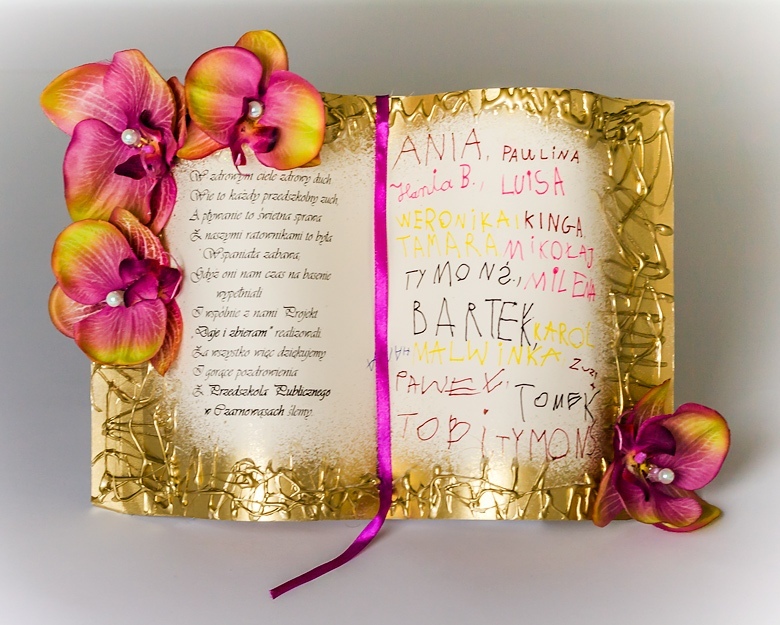 W zdrowym ciele zdrowy duch.
Wie to każdy przedszkolny zuch,
A pływanie to świetna sprawa
Z naszymi ratownikami to była
Wspaniała zabawa,
Gdyż oni nam czas na basenie
wypełniali
I wspólnie z nami Projekt
„Daje i zbieram” realizowali.
Za wszystko więc dziękujemy
I gorące pozdrowienia
Z Przedszkola Publicznego
w Czarnowąsach ślemy.
ANIA, PAULINA
Hania B., LUISA
WERONIKA, KINGA,
TAMARA MIKOŁAJ
TYMON Ś., MILENA
BARTEK, KAROL
MALWINKA Zuzia
PAWEŁ, TOMEK
TOBi TYMON S